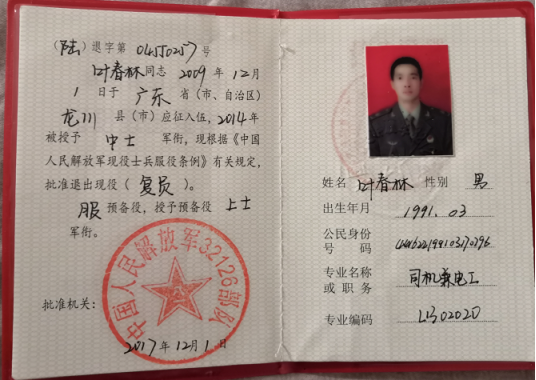 （陆）退字第 04550257 号
叶春林同志 2009 年 12 月
1 日于 广东 省（市、自治区）
龙川 县（市）应征入伍，2014年
被授予 中士 军衔，现根据《中国
人民解放军现役士兵服役条例》有关规定，
批准退出现役（ 复员 ）。
服 预备役，授予预备役 上士
军衔。
中国人民解放军32126部队
批准机关：
2017 年 12 月 1 日
姓名 叶春林 性别 男
出生年月 1991.03
公民身份
号 码
专业名称 司机兼电工
或 职务
专业编码